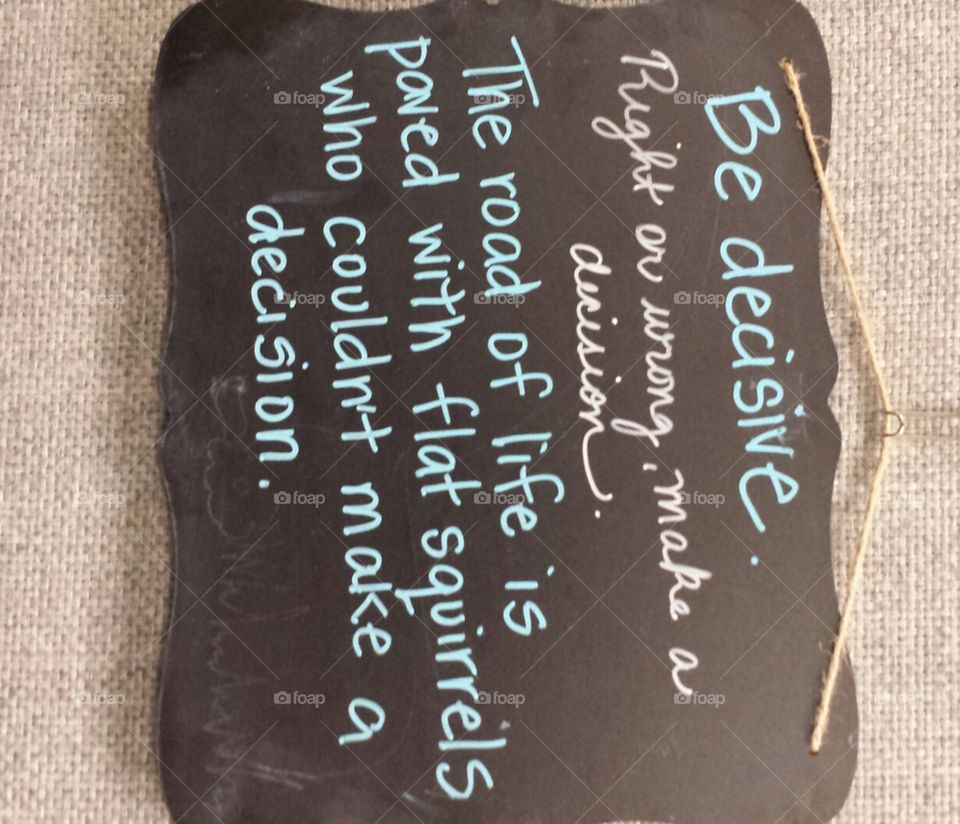 Be decisive.
Right or wrong, make a
decision.
The road of life is
paved with flat squirrels
who couldn't make a
decision.
foap